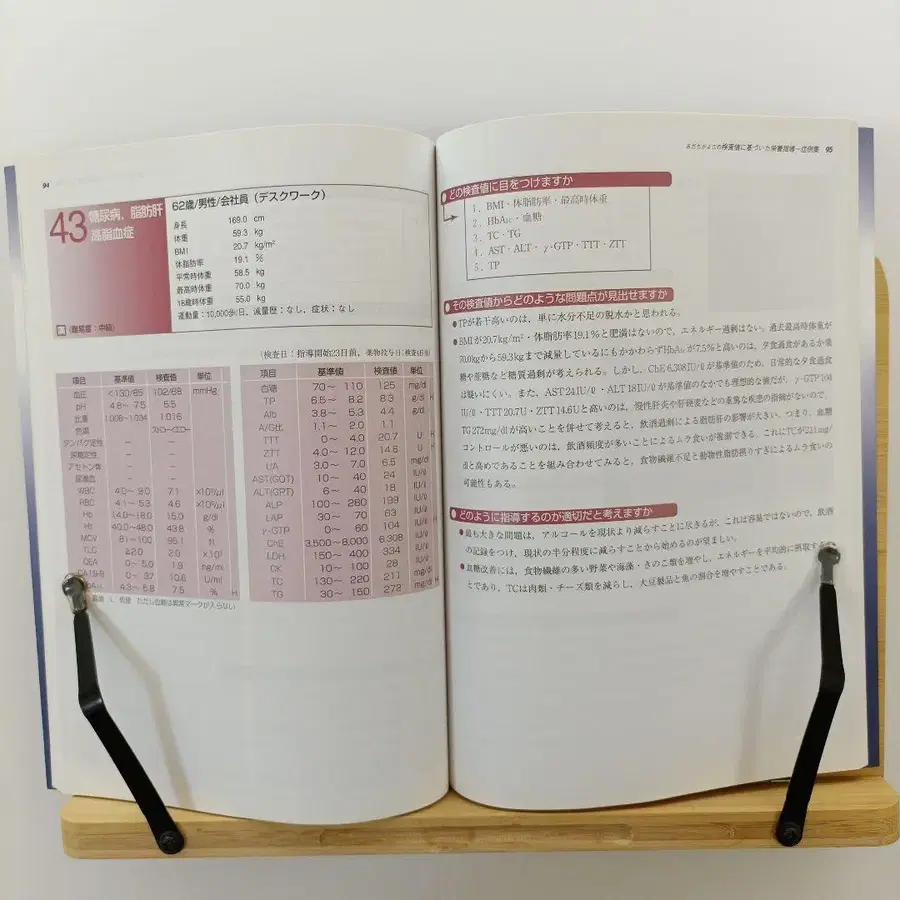 94
43 糖尿病，脂肪肝
高脂血症
(難易度：中級)
62歳/男性/会社員（デスクワーク）
身長 169.0 cm
体重 59.3 kg
BMI 20.7 kg/m²
体脂肪率 19.1 %
平常時体重 58.5 kg
最高時体重 70.0 kg
18歳時体重 55.0 kg
運動量：10,000歩/日，減量歴：なし，症状：なし
(検査日：指導開始23日前，薬物投与
項目 基準値 検査値 単位
血圧 <130/85 102/68 mmHg
pH 4.8〜 7.5 5.5
比重 1.006〜1.034 1.016
色調 ストローイエロー
タンパク定性 − −
尿糖定性 − −
アセトン体 − −
尿潜血 − −
WBC 4.0〜 9.0 7.1 ×10³/μl
RBC 4.1〜 5.3 4.6 ×10⁶/μl
Hb 14.0〜18.0 15.0 g/dl
Ht 40.0〜48.0 43.8 %
MCV 81〜100 95.1 fl
TLC ≧2.0 2.0 ×10³
CEA 0〜 5.0 1.9 ng/ml
CA19-9 0〜 37 10.6 U/ml
4.3〜 5.8 7.5 % H
ただし血糖は異常マークが入らない
項目 基準値 検査値 単位
血糖 70〜 110 125 mg/dl
TP 6.5〜 8.2 8.3 g/dl H
Alb 3.8〜 5.3 4.4 g/dl
A/G比 1.1〜 2.0 1.1
TTT 0〜 4.0 20.7 U H
ZTT 4.0〜 12.0 14.6 U H
UA 3.0〜 7.0 6.5 mg/dl
AST(GOT) 10〜 40 24 IU/ℓ
ALT(GPT) 6〜 40 18 IU/ℓ
ALP 100〜 280 199 IU/ℓ
LAP 30〜 70 63 IU/ℓ
γ-GTP 0〜 60 104 IU/ℓ H
ChE 3,500〜8,000 6,308 IU/ℓ
LDH 150〜 400 334 IU/ℓ
CK 10〜 100 28 IU/ℓ
TC 130〜 220 211 mg/dl
TG 30〜 150 272 mg/dl H
検査値に基づいた栄養指導−症例集 95
どの検査値に目をつけますか
1．BMI・体脂肪率・最高時体重
2．HbA₁c・血糖
3．TC・TG
4．AST・ALT・γ-GTP・TTT・ZTT
5．TP
その検査値からどのような問題点が見出せますか
●TPが若干高いのは，単に水分不足の脱水かと思われる。
●BMIが20.7kg/m²・体脂肪率19.1%と肥満はないので，エネルギー過剰はない。過去最高時体重が
70.0kgから59.3kgまで減量しているにもかかわらずHbA₁cが7.5%と高いのは，夕食過食があるか菓
糖や蔗糖など糖質過剰が考えられる。しかし，ChE 6,308IU/ℓが基準値のため，日常的な夕食過食
は疑いにくい。また，AST 24IU/ℓ・ALT 18IU/ℓが基準値のなかでも理想的な値だが，γ-GTP 104
IU/ℓ・TTT 20.7U・ZTT 14.6Uと高いのは，慢性肝炎や肝硬変などの重篤な疾患の指摘がないので，
TG 272mg/dlが高いことを併せて考えると，飲酒過剰による脂肪肝の影響が大きい。つまり，血糖
コントロールが悪いのは，飲酒頻度が多いことによるムラ食いが推測できる。これにTCが211mg/
dlと高めであることを組み合わせてみると，食物繊維不足と動物性脂肪摂りすぎによるムラ食いの
可能性もある。
どのように指導するのが適切だと考えますか
●最も大きな問題は，アルコールを現状より減らすことに尽きるが，これは容易ではないので，飲酒
の記録をつけ，現状の半分程度に減らすことから始めるのが望ましい。
●血糖改善には，食物繊維の多い野菜や海藻・きのこ類を増やし，エネルギーを平均的に摂取する
とであり，TCは肉類・チーズ類を減らし，大豆製品と魚の割合を増やすことである。